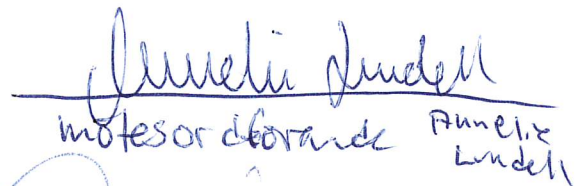 Annelie Lundell
mötesordförande Annelie
Lundell